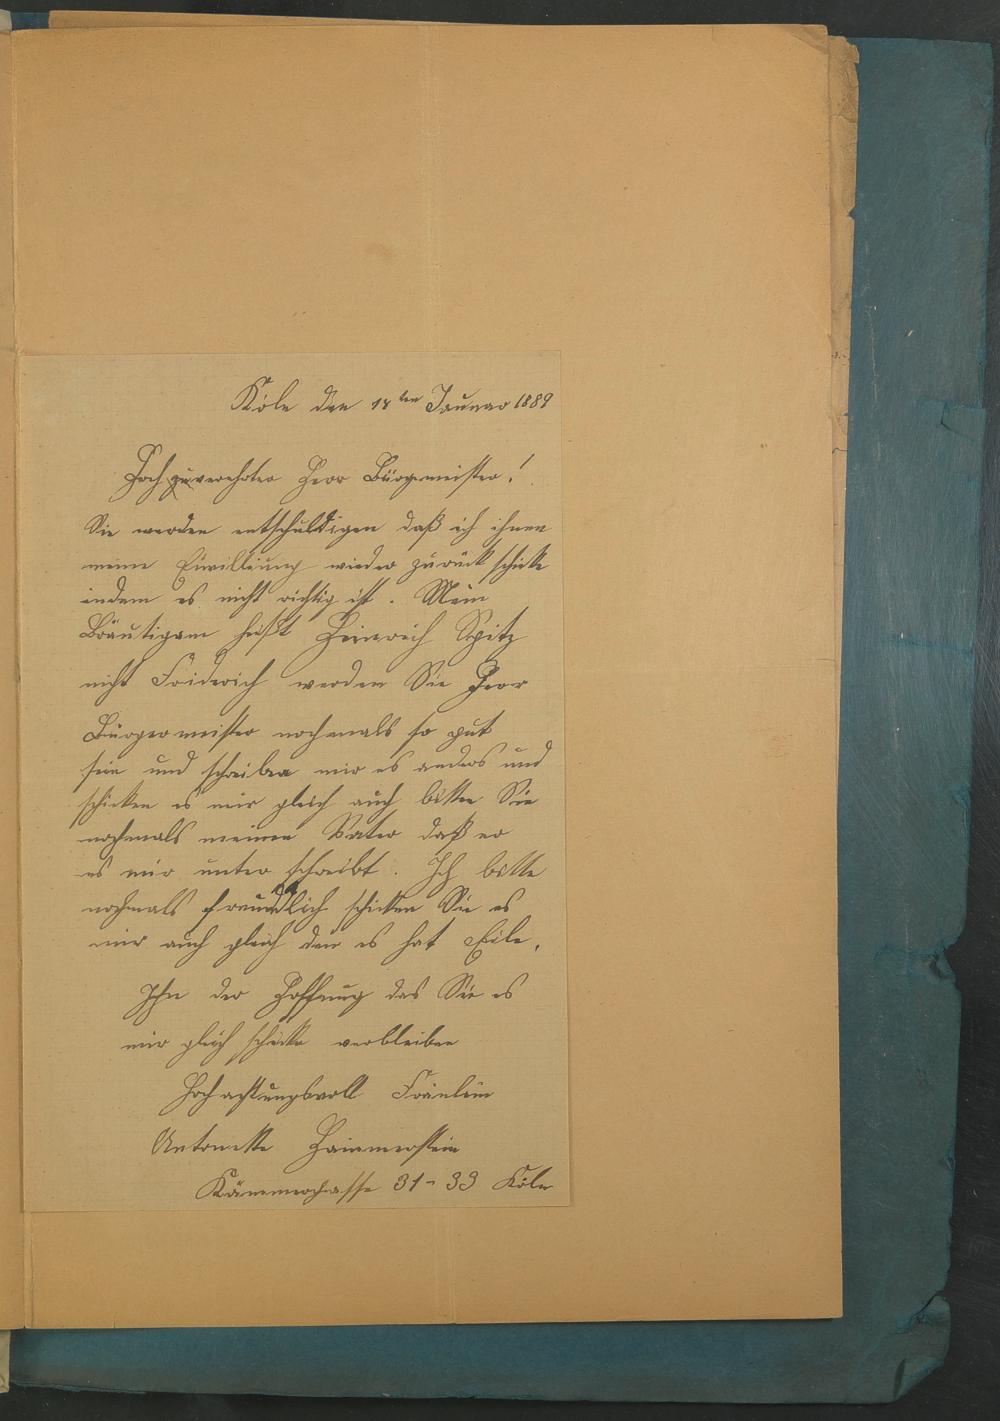 Köln den 18ten Januar 1889
Hoch zuverehrter Herr Bürgemeister!
Sie werden entschuldigen daß ich ihnen
meine Einwilliung wieder zurück schicke
indem es nicht richtig ist. Mein
Bräutigam heißt Heinreich Spitz
nicht Friderich werden Sie Herr
Bürgermeister nochmals so gut
sein und schreiben mir es anders und
schicken es mir gleich auch bitten Sie
nochmals meinen Vater daß er
es mir unter schreibt. Ich bitte
nochmals freundlich schicken Sie es
mir auch gleich den es hat Eile.
Ihn der Hoffnung das Sie es
mir gleich schicke verbleiben
Hochachtungsvoll Fräulein
Antonette Hammerstein
Kämmergasse 31-33 Köln